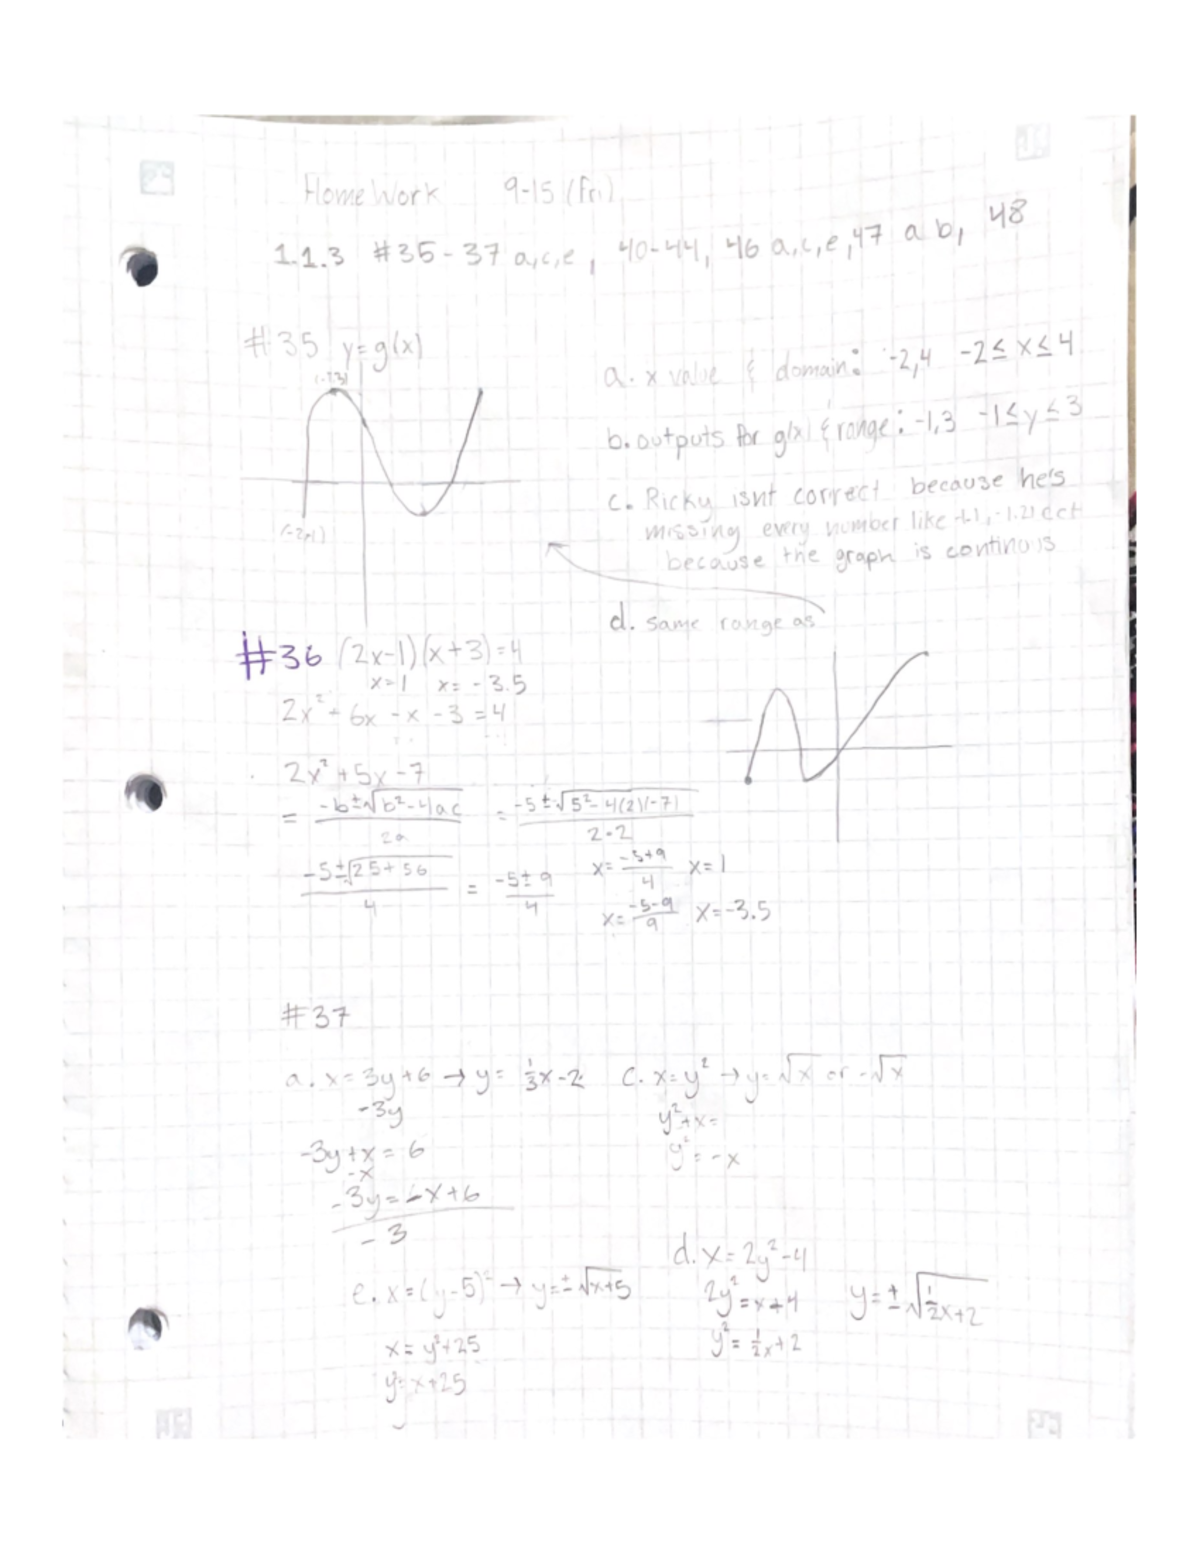 Home Work 9-15 (Fri)
1.1.3 #35-37 a,c,e, 40-44, 46 a,c,e, 47 a b, 48
#35 y=g(x)
a. x value & domain: -2,4 -2≤x≤4
b. outputs for g(x) & range: -1,3 -1≤y≤3
c. Ricky isnt correct because he's
missing every number like
because the graph is
d. same range as
#36 (2x-1)(x+3)=4
x=1 x=-3.5
2x²+6x-x-3=4
2x²+5x-7
= -b±√b²-4ac / 2a = -5±√5²-4(2)(-7) / 2·2
-5±√25+56 / 4 = -5±9 / 4 x= -5+9 / 4 x=1
x= -5-9 / 9 x=-3.5
#37
a. x=3y+6 → y= 1/3x-2
-3y
-3y+x=6
-x
-3y=-x+6
-3
c. x=y² → y=√x or -√x
y²+x=
y²=-x
d. x=2y²-4
2y²=x+4 y=±√1/2x+2
y²=1/2x+2
e. x=(y-5)² → y=±√x+5
x=y²+25
y=x+25